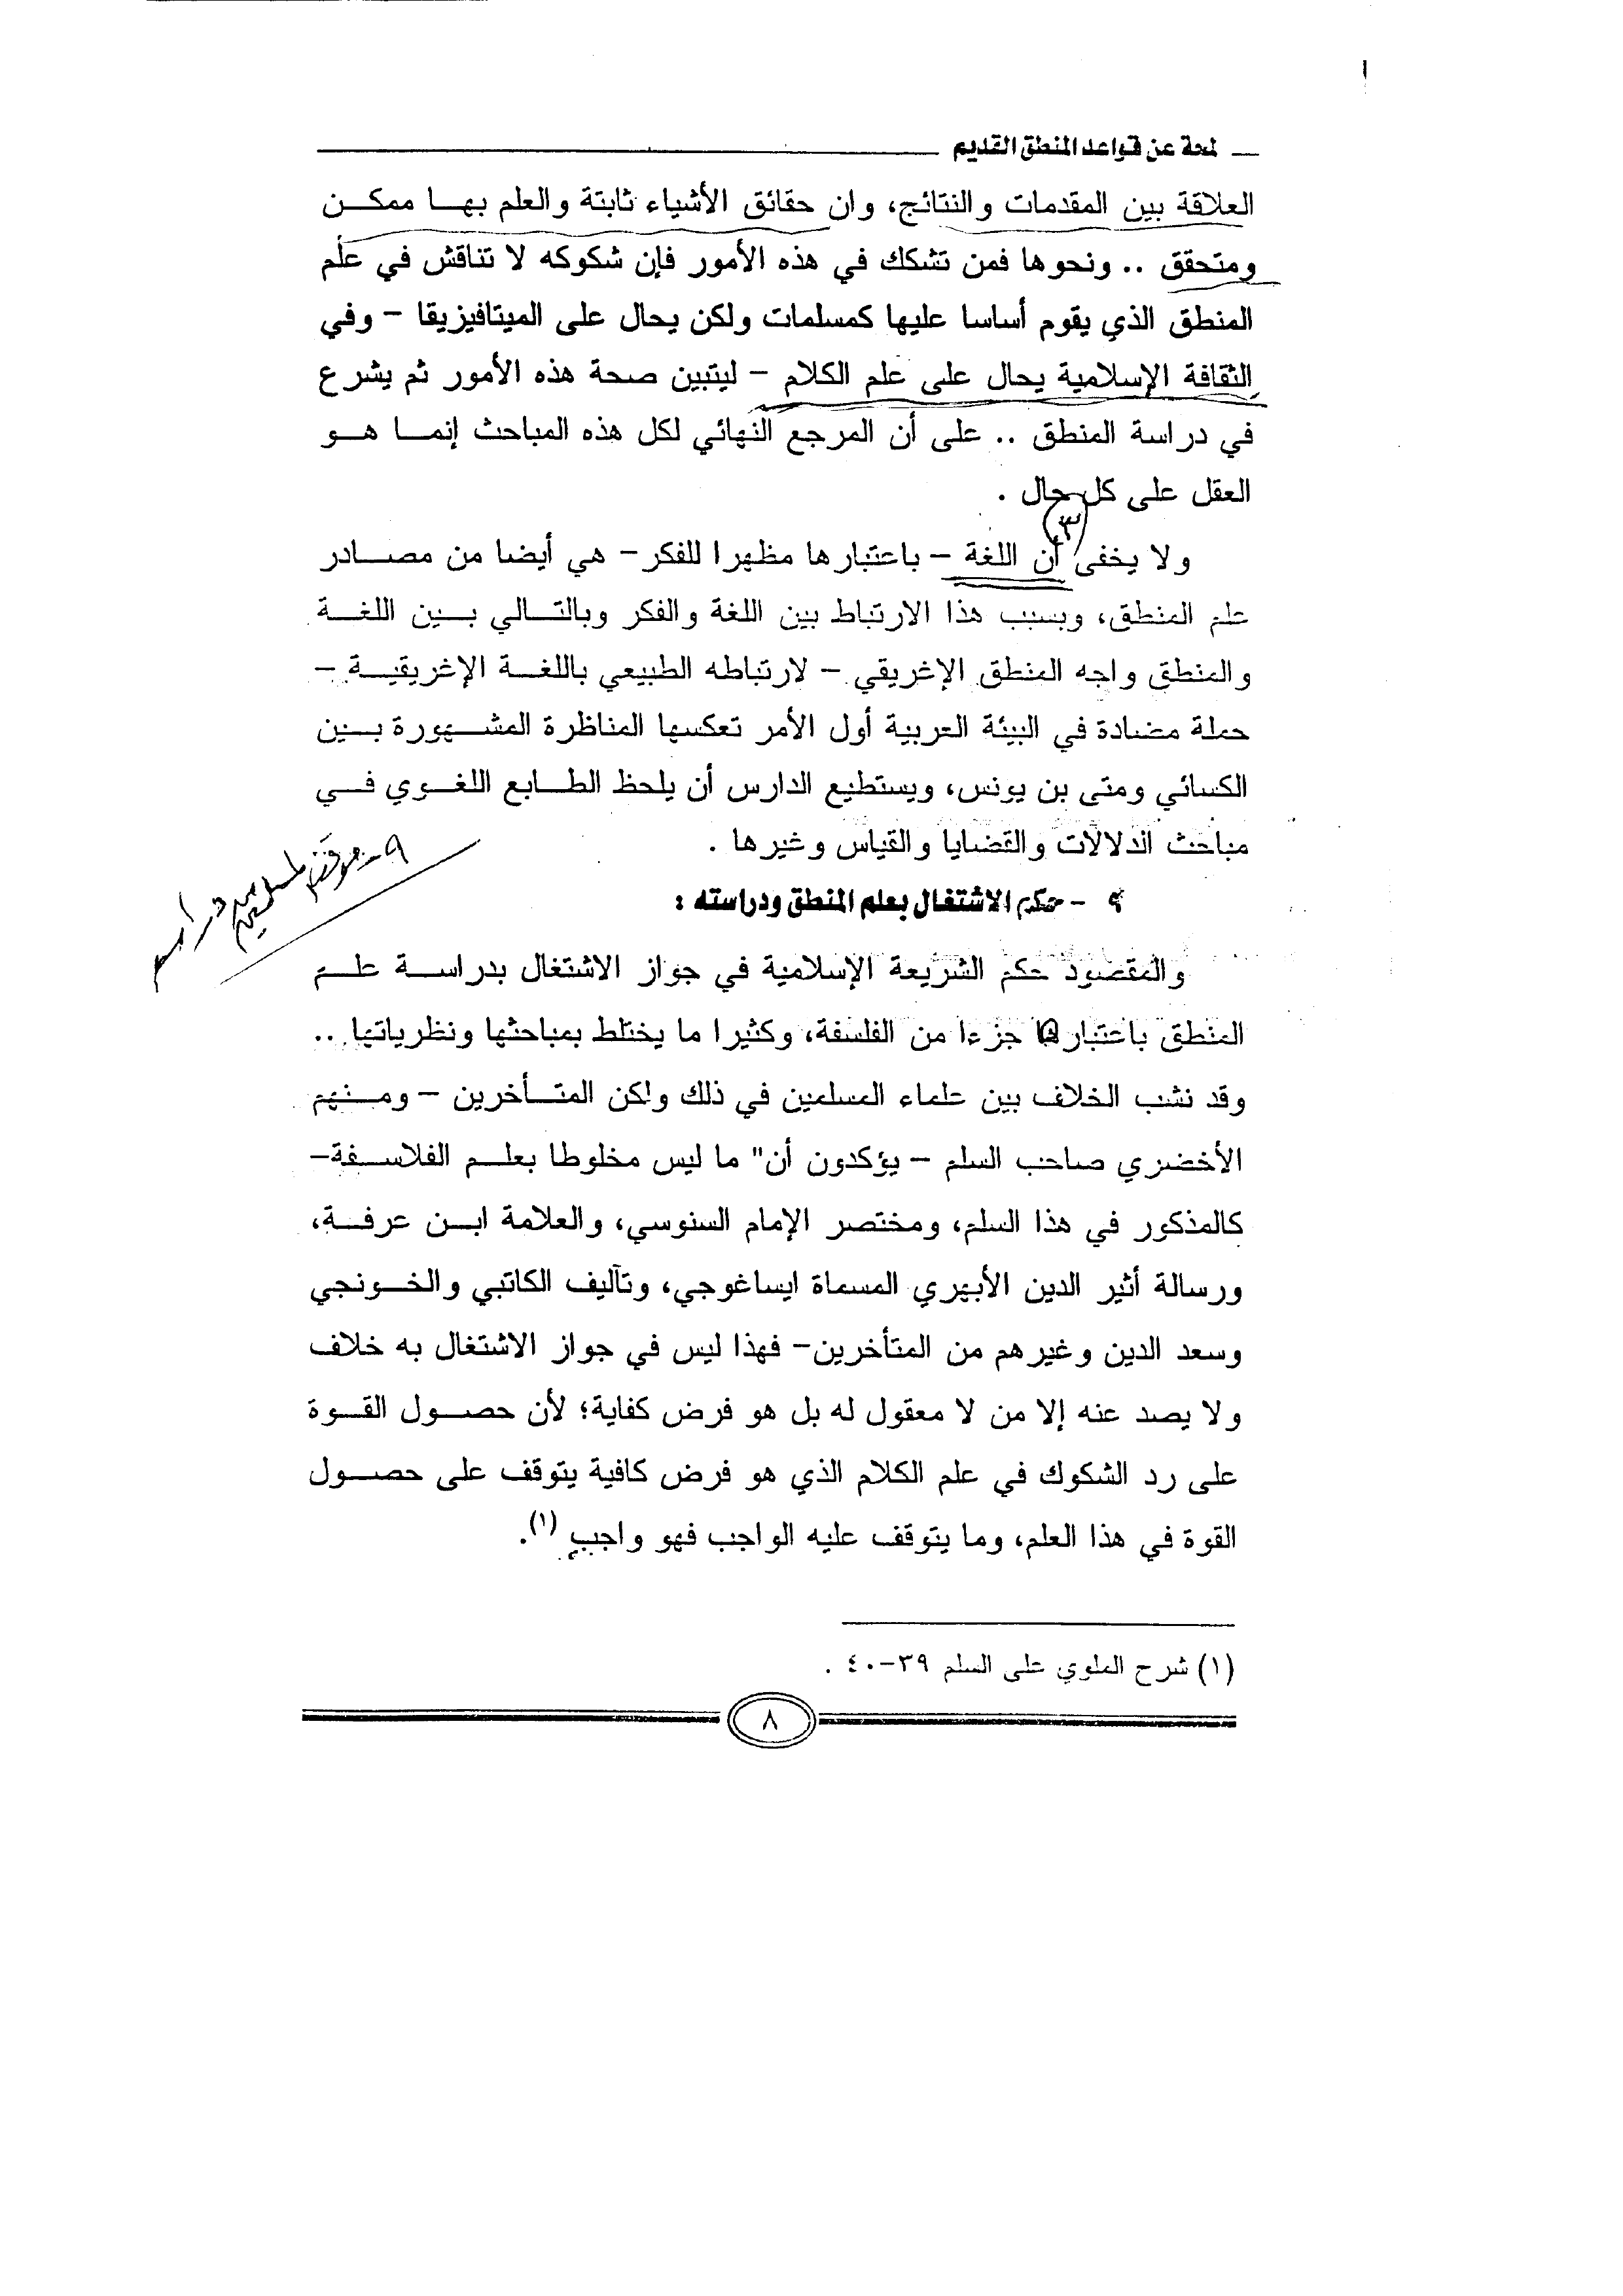 لمحة عن قواعد المنطق القديم
العلاقة بين المقدمات والنتائج، وان حقائق الأشياء ثابتة والعلم بهــا ممكــن
ومتحقق .. ونحوها فمن تشكك في هذه الأمور فإن شكوكه لا تناقش في علم
المنطق الذي يقوم أساسا عليها كمسلمات ولكن يحال على الميتافيزيقا – وفي
الثقافة الإسلامية يحال على علم الكلام – ليتبين صحة هذه الأمور ثم يشرع
في دراسة المنطق .. على أن المرجع النهائي لكل هذه المباحث إنمــا هــو
العقل على كل حال .
(٣)
ولا يخفى أن اللغة – باعتبارها مظهرا للفكر – هي أيضا من مصــادر
علم المنطق، وبسبب هذا الارتباط بين اللغة والفكر وبالتــالي بــين اللغــة
والمنطق واجه المنطق الإغريقي – لارتباطه الطبيعي باللغــة الإغريقيــة –
حملة مضادة في البيئة العربية أول الأمر تعكسها المناظرة المشــهورة بــين
الكسائي ومتى بن يونس، ويستطيع الدارس أن يلحظ الطــابع اللغــوي فــي
مباحث الدلالات والقضايا والقياس وغيرها .
٩ – موقف المسلمين
٩ – حكم الاشتغال بعلم المنطق ودراسته :
والمقصود حكم الشريعة الإسلامية في جواز الاشتغال بدراســة علــم
المنطق باعتباره جزءا من الفلسفة، وكثيرا ما يختلط بمباحثها ونظرياتها ..
وقد نشب الخلاف بين علماء المسلمين في ذلك ولكن المتــأخرين – ومــنهم
الأخضري صاحب السلم – يؤكدون أن" ما ليس مخلوطا بعلــم الفلاســفة–
كالمذكور في هذا السلم، ومختصر الإمام السنوسي، والعلامة ابــن عرفــة،
ورسالة أثير الدين الأبهري المسماة ايساغوجي، وتآليف الكاتبي والخــونجي
وسعد الدين وغيرهم من المتأخرين– فهذا ليس في جواز الاشتغال به خلاف
ولا يصد عنه إلا من لا معقول له بل هو فرض كفاية؛ لأن حصــول القــوة
على رد الشكوك في علم الكلام الذي هو فرض كافية يتوقف على حصــول
القوة في هذا العلم، وما يتوقف عليه الواجب فهو واجب (١).
(١) شرح الملوي على السلم ٣٩–٤٠ .
٨